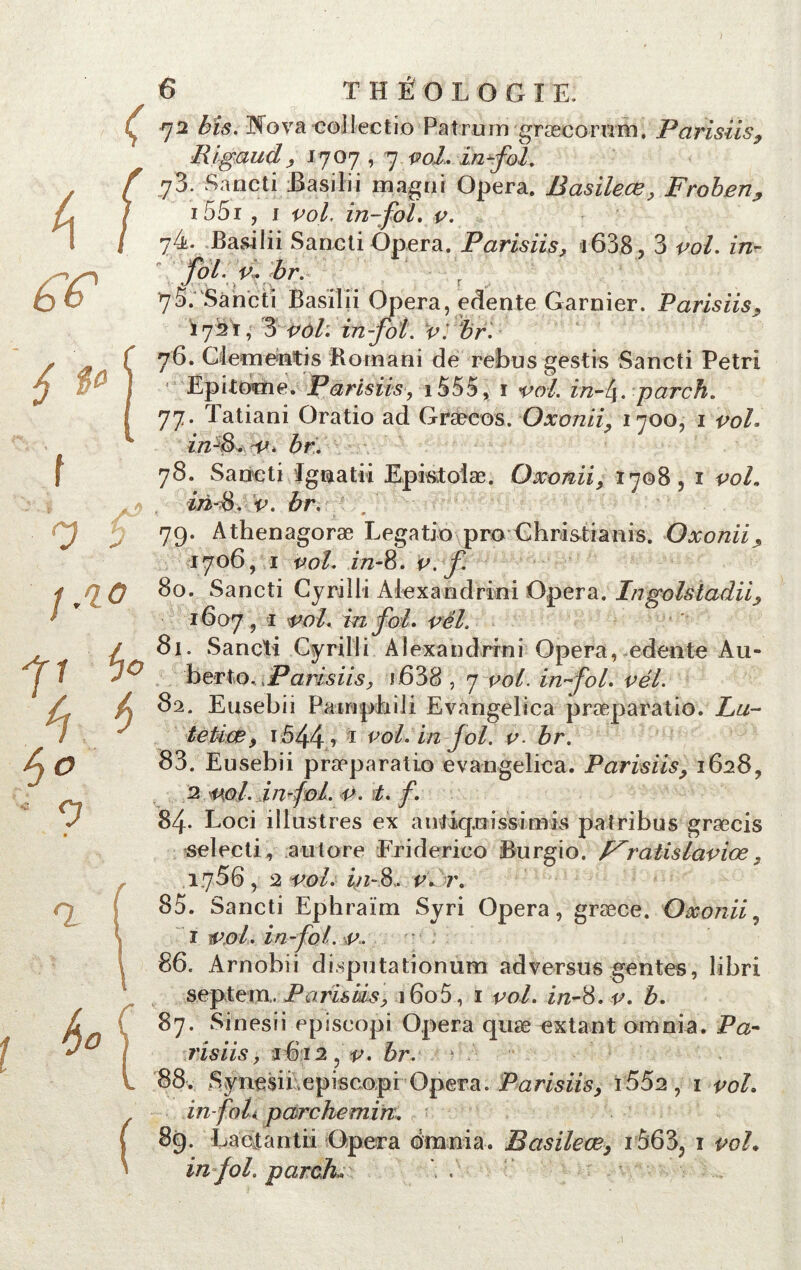 6 THÉOLOGIE.
72 bis. Nova collectio Patrum græcorum. Parisiis,
Rigaud, 1707, 7 vol. in-fol.
73. Sancti Basilii magni Opera. Basileæ, Froben,
1551, 1 vol. in-fol. v.
4
74. Basilii Sancti Opera. Parisiis, 1638, 3 vol. in-
fol. v. br.
66
75. Sancti Basilii Opera, edente Garnier. Parisiis,
1721, 3 vol. in-fol. v. br.
76. Clementis Romani de rebus gestis Sancti Petri
Epitome. Parisiis, 1555, 1 vol. in-4. parch.
77. Tatiani Oratio ad Græcos. Oxonii, 1700, 1 vol.
in-8. v. br.
78. Sancti Ignatii Epistolæ. Oxonii, 1708, 1 vol.
in-8. v. br.
79. Athenagoræ Legatio pro Christianis. Oxonii,
1706, 1 vol. in-8. v. f.
1.20
80. Sancti Cyrilli Alexandrini Opera. Ingolstadii,
1607, 1 vol. in fol. vél.
71 50
81. Sancti Cyrilli Alexandrini Opera, edente Au-
berto. Parisiis, 1638, 7 vol. in-fol. vél.
82. Eusebii Pamphili Evangelica præparatio. Lu-
tetiæ, 1544, 1 vol. in fol. v. br.
83. Eusebii præparatio evangelica. Parisiis, 1628,
2 vol. in-fol. v. t. f.
84. Loci illustres ex antiquissimis patribus græcis
selecti, autore Friderico Burgio. Vratislaviæ,
1756, 2 vol. in-8. v. r.
85. Sancti Ephraïm Syri Opera, græce. Oxonii,
1 vol. in-fol. v.
86. Arnobii disputationum adversus gentes, libri
septem. Parisiis, 1605, 1 vol. in-8. v. b.
87. Sinesii episcopi Opera quæ extant omnia. Pa-
risiis, 1612, v. br.
88. Synesii episcopi Opera. Parisiis, 1552, 1 vol.
in-fol. parchemin.
89. Lactantii Opera omnia. Basileæ, 1563, 1 vol.
in fol. parch.